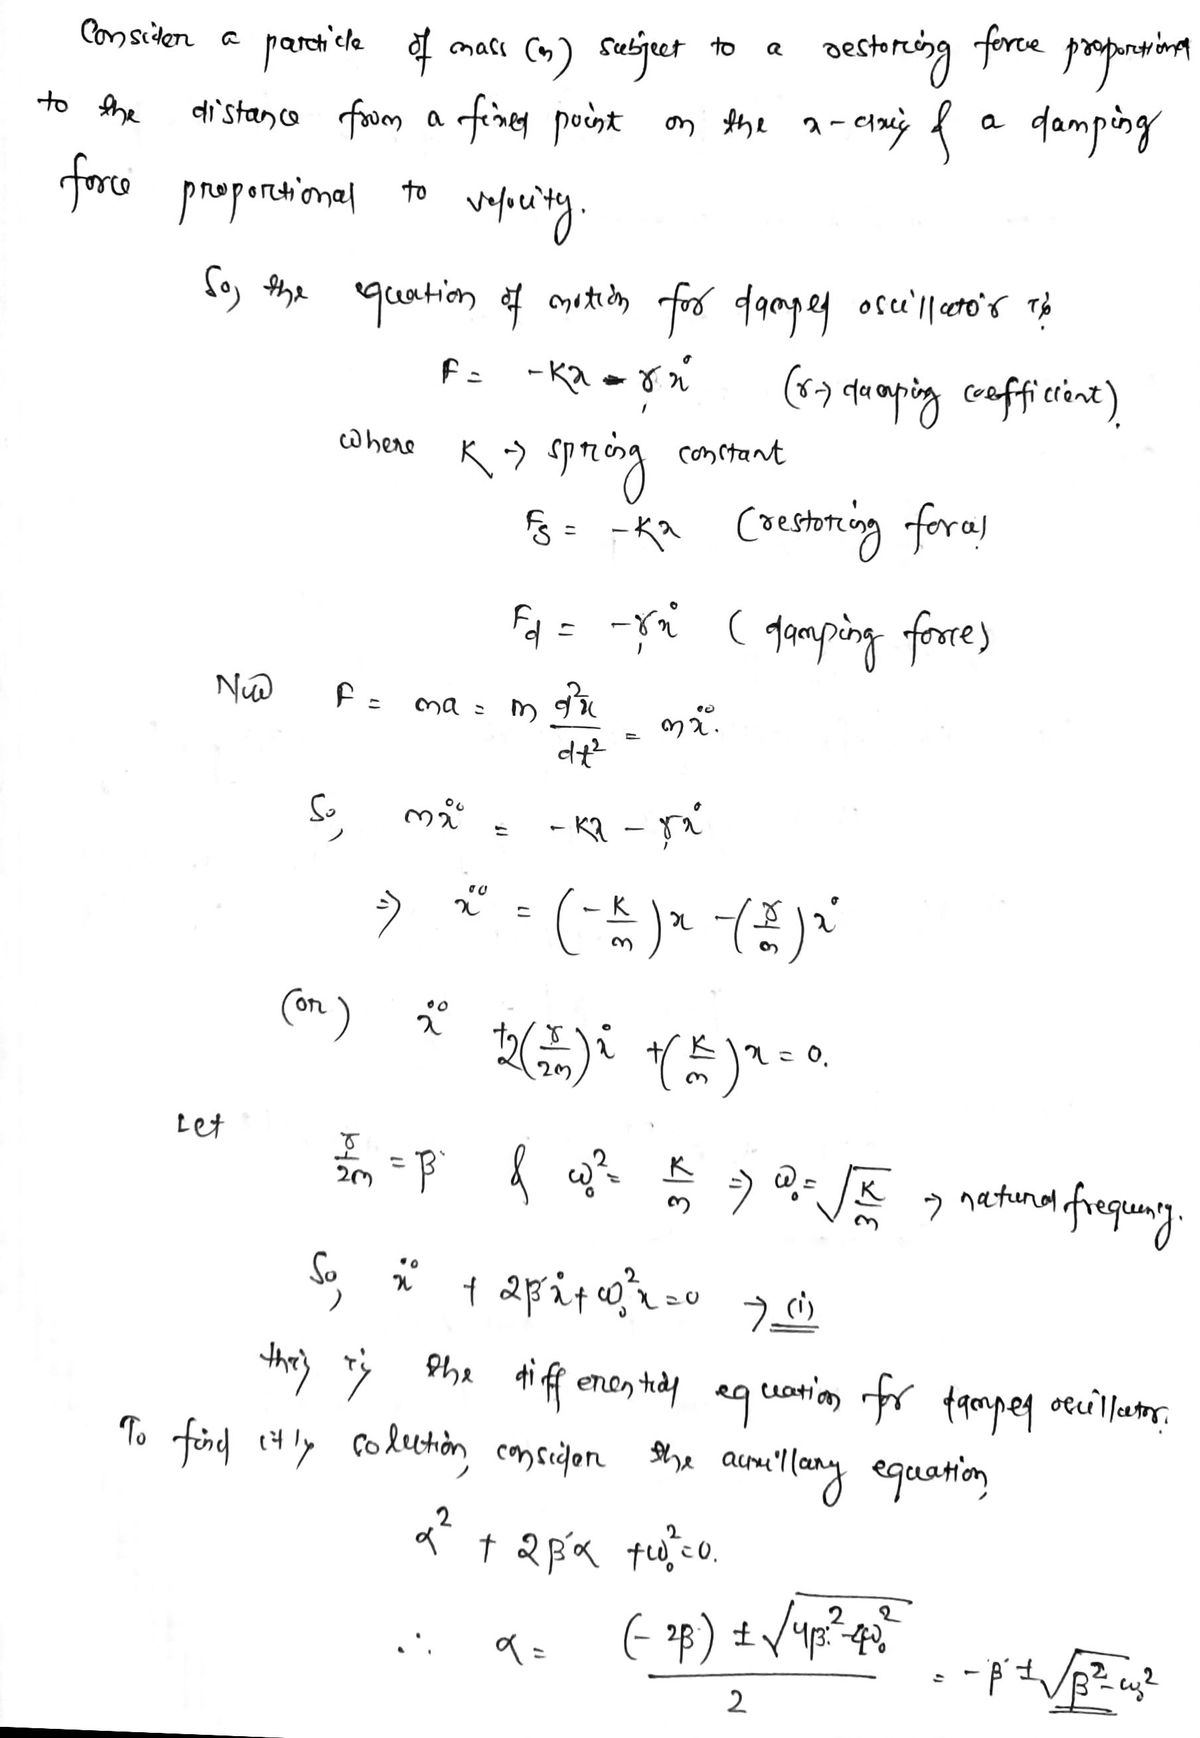 Consider a particle of mass (m) subject to a restoring force proportional
to the distance from a fixed point on the x-axis & a damping
force proportional to velocity.
So, the equation of motion for damped oscillator is
F = -Kx - γẋ (γ → damping coefficient).
where K → spring constant
F_s = -Kx (restoring force)
F_d = -γẋ (damping force)
Now F = ma = m d²x/dt² = mẍ.
So, mẍ = -Kx - γẋ
⇒ ẍ = (-K/m)x - (γ/m)ẋ
(or) ẍ + 2(γ/2m)ẋ + (K/m)x = 0.
Let γ/2m = β & ω₀² = K/m ⇒ ω₀ = √(K/m) → natural frequency.
So, ẍ + 2βẋ + ω₀²x = 0 → (i)
this is the differential equation for damped oscillator.
To find its solution, consider the auxillary equation,
α² + 2βα + ω₀² = 0.
∴ α = ((-2β) ± √(4β² - 4ω₀²))/2 = -β ± √(β² - ω₀²)